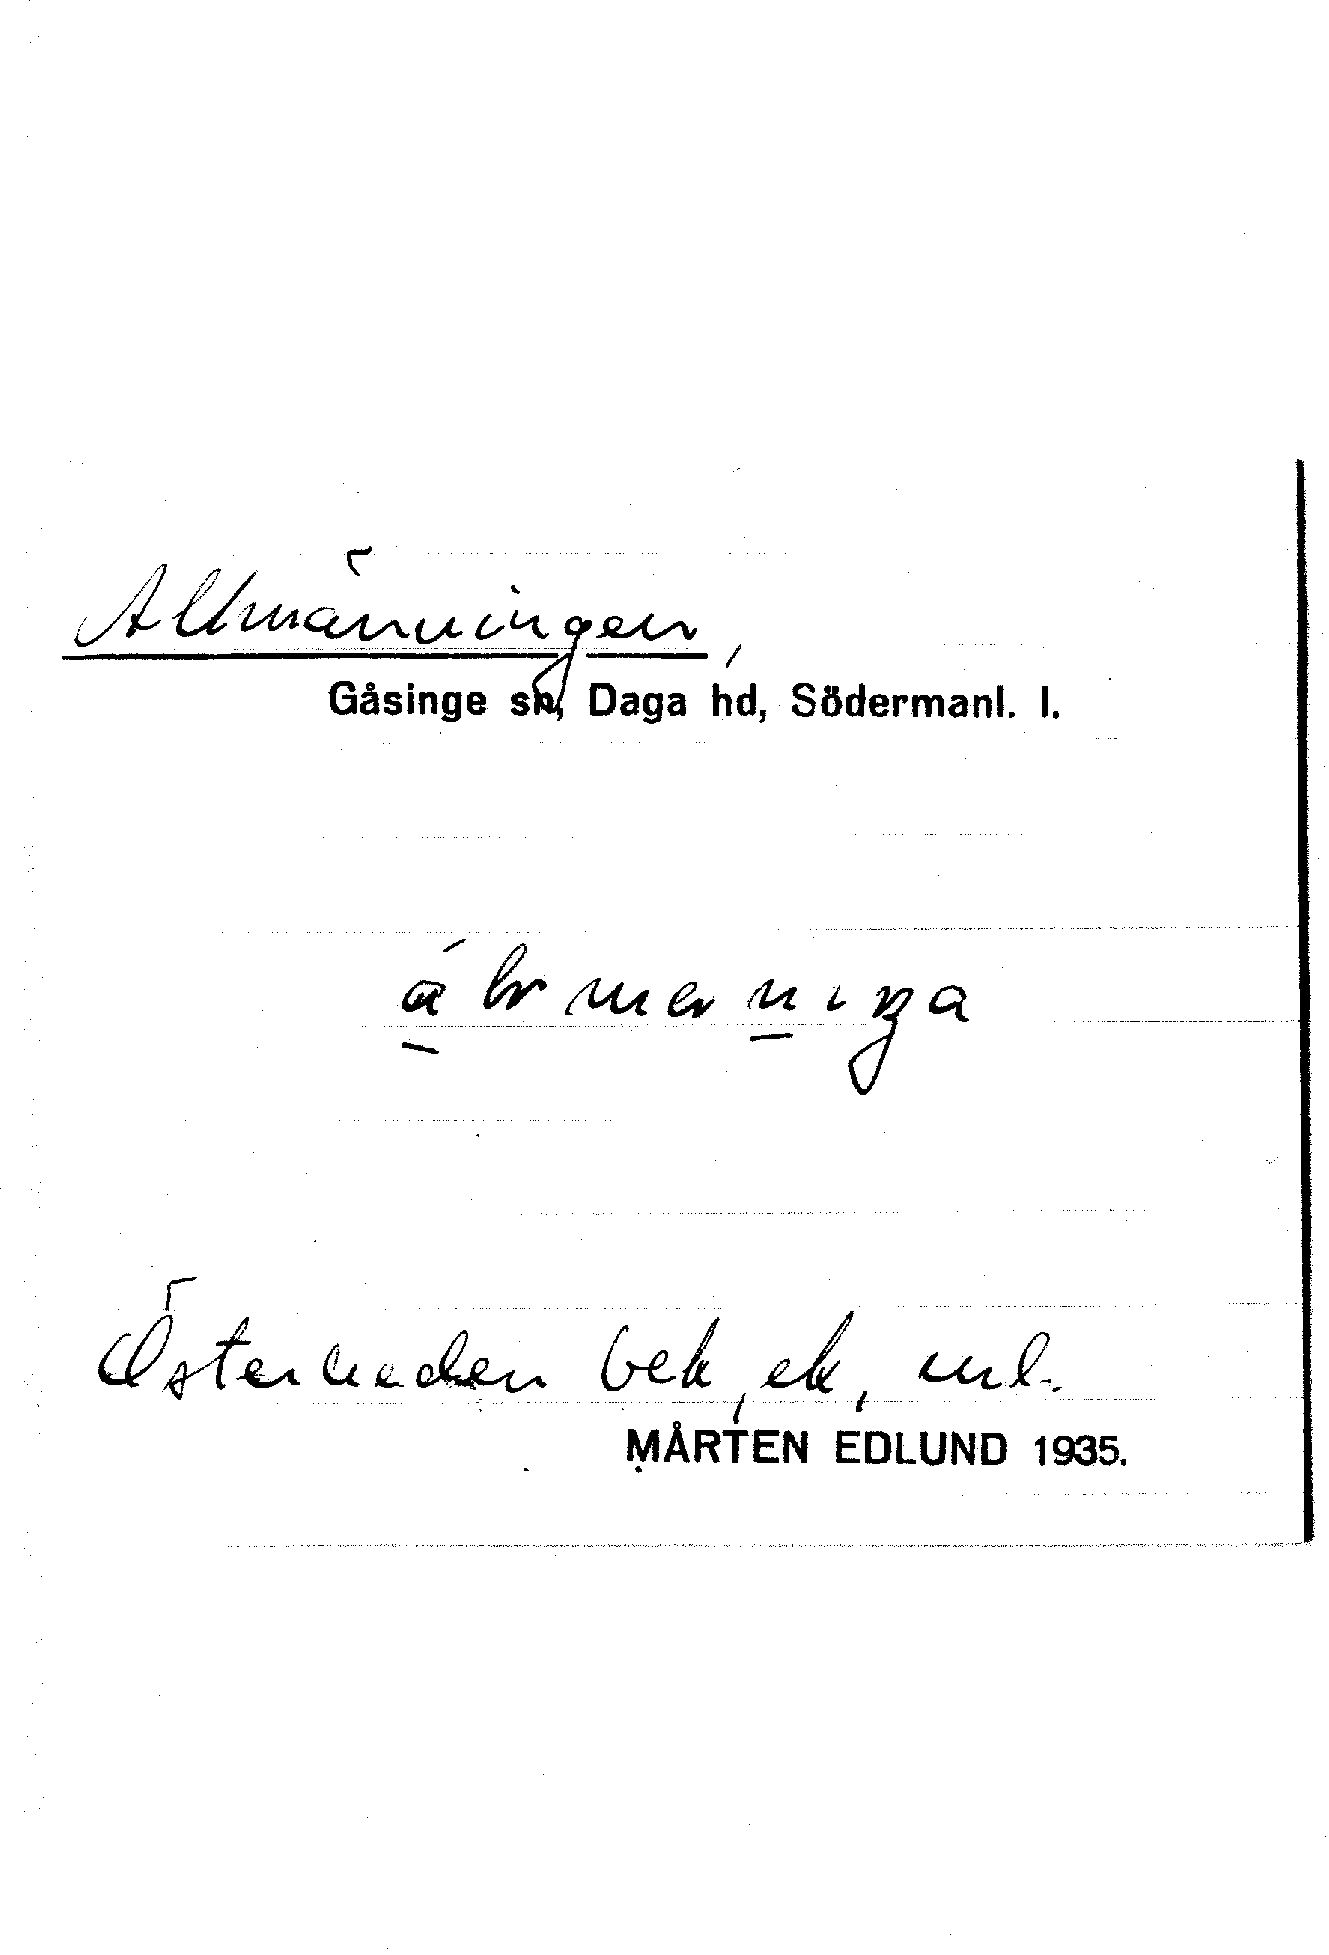 Allmänningen,
Gåsinge sn, Daga hd, Södermanl. l.
Österheden bek, ek, ml.
MÅRTEN EDLUND 1935.